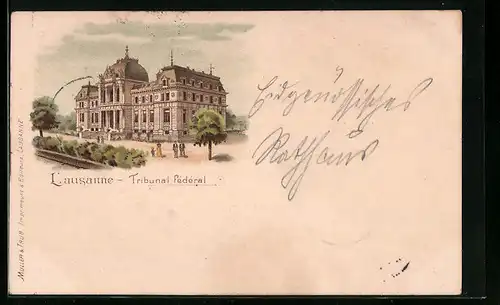 Lausanne – Tribunal Fédéral
Eidgenössisches
Rathaus
MULLER & TRÜB, Imprimeurs & Editeurs, LAUSANNE